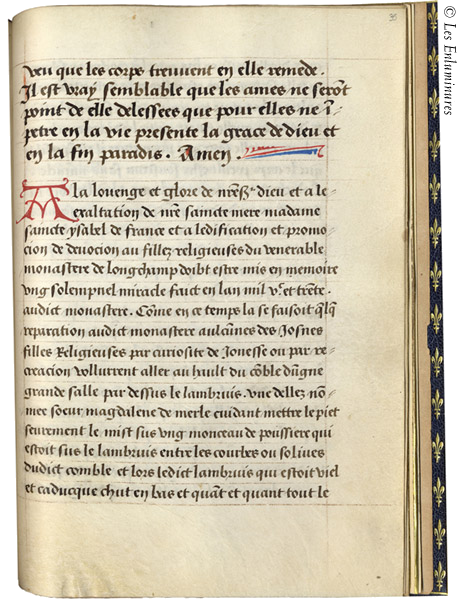 39
veu que les corps treuvent en elle remede.
Il est vray semblable que les ames ne serõt
point de elle delessees que pour elles ne ĩ-
petre en la vie presente la grace de dieu et
en la fin paradis. Amen.
A la louenge et glore de nrẽ dieu et a le-
exaltation de nrẽ saincte mere madame
saincte ysabel de france et a ledification et promo-
cion de devocion au fillez religieuses du venerable
monastere de longchamp doibt estre mis en memoire
ung solempnel miracle faict en lan mil vᶜ et trẽte.
audict monastere. Cõme en ce temps la se faisoit q̃lq̃
reparation audict monastere aulcũnes des Josnes
filles Religieuses par curiosite de Jonesse ou par re-
creacion vollurrent aller au hault du cõble dũgne
grande salle par dessus le lambruis. vne dellez nõ-
mee soeur magdalene de merle cuidant mettre le piet
seurement le mist sus ung monceau de poussiere qui
estoit sus le lambruis entre les courbes ou solives
dudict comble et lors ledict lambruis qui estoit viel
et caducque chut en bas et quãt et quant tout le
© Les Enluminures